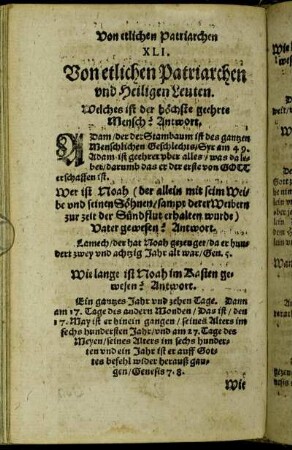 Von etlichen Patriarchen
XLI.
Von etlichen Patriarchen
vnd Heiligen Leuten.
Welches ist der höchste geehrte
Mensch? Antwort.
ADam/ der der Stambaum ist des gantzen
Menschlichen Geschlechts/ Syr am 49.
Adam ist geehret vber alles/ was da le-
bet/ darumb das er der erste von GOTT
erschaffen ist.
Wer ist Noah (der allein mit seim Wei-
be vnd seinen Söhnen/ sampt derer Weibern
zur zeit der Sündflut erhalten wurde)
Vater gewesen? Antwort.
Lamech/ der hat Noah gezeuget/ da er hun-
dert zwey vnd achzig Jahr alt war/ Gen. 5.
Wie lange ist Noah im Kasten ge-
wesen? Antwort.
Ein gantzes Jahr vnd zehen Tage. Dann
am 17. Tage des andern Monden/ Das ist/ den
17. May ist er hinein gangen/ seines Alters im
sechs hundersten Jahr/ vnd am 27. Tage des
Meyen/ seines Alters im sechs hunder-
ten vnd ein Jahr ist er auff Got-
tes befehl wider herauß gan-
gen/ Genesis 7. 8.
Wie